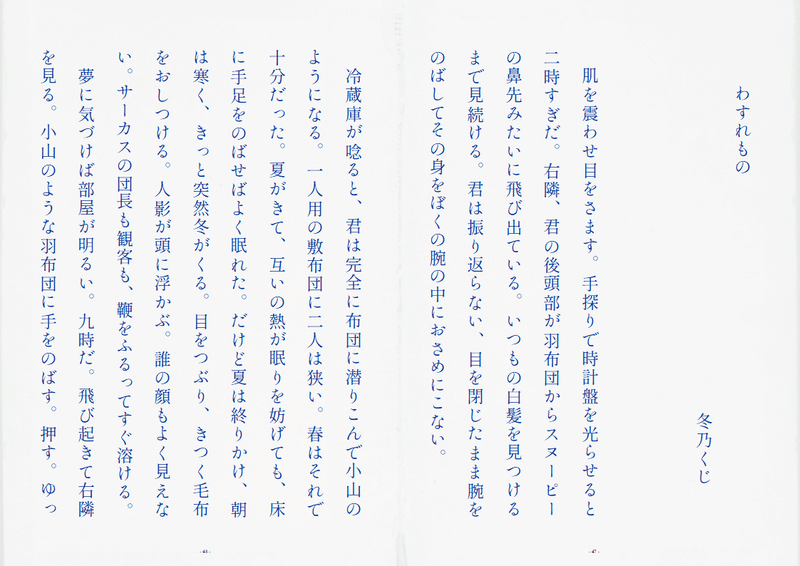 わすれもの
冬乃くじ
肌を震わせ目をさます。手探りで時計盤を光らせると
二時すぎだ。右隣、君の後頭部が羽布団からスヌーピー
の鼻先みたいに飛び出ている。いつもの白髪を見つける
まで見続ける。君は振り返らない、目を閉じたまま腕を
のばしてその身をぼくの腕の中におさめにこない。
冷蔵庫が唸ると、君は完全に布団に潜りこんで小山の
ようになる。一人用の敷布団に二人は狭い。春はそれで
十分だった。夏がきて、互いの熱が眠りを妨げても、床
に手足をのばせばよく眠れた。だけど夏は終りかけ、朝
は寒く、きっと突然冬がくる。目をつぶり、きつく毛布
をおしつける。人影が頭に浮かぶ。誰の顔もよく見えな
い。サーカスの団長も観客も、鞭をふるってすぐ溶ける。
夢に気づけば部屋が明るい。九時だ。飛び起きて右隣
を見る。小山のような羽布団に手をのばす。押す。ゆっ